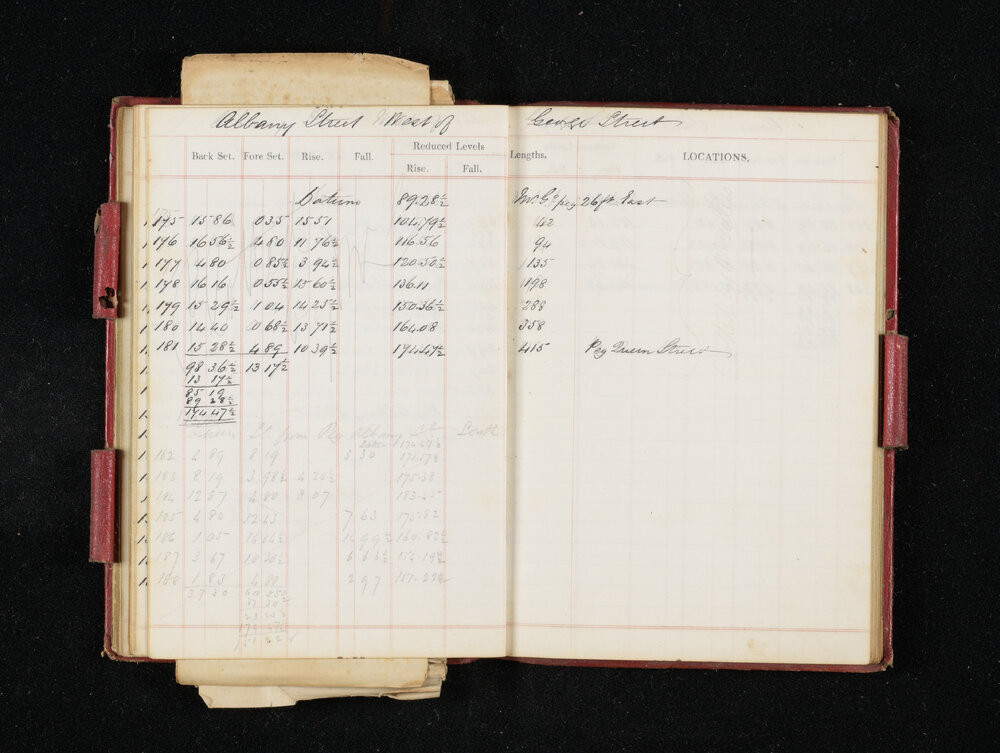 Albany Street West of George Street
Reduced Levels
Back Set. Fore Set. Rise. Fall. Rise. Fall. Lengths. LOCATIONS.
Datum 89.28½ peg 26 ft East
175 15 86 0 35 15 51 104.79½ 42
176 16 56½ 4 80 11 76½ 116.56 94
177 4 80 0 85½ 3 94½ 120.50½ 135
178 16 16 0 55½ 15 60½ 136.11 198
179 15 29½ 1 04 14 25½ 150.36½ 288
180 14 40 0 68½ 13 71½ 164.08 358
181 15 28½ 4 89 10 39½ 174.47½ 415 Peg Queen Street
98 36½ 13 17½
13 17½
85 19
89 28½
174 47½
Queen St from Peg Albany St South
174.47½
182 4 89 8 19 3 30 171.17½
183 8 19 3 98½ 4 20½ 175.38
184 12 87 4 80 8 07 183.45
185 4 80 12 43 7 63 175.82
186 1 05 16 04½ 14 99½ 160.82½
187 3 67 10 30½ 6 63½ 154.19
188 1 83 4 80 2 97
37 30